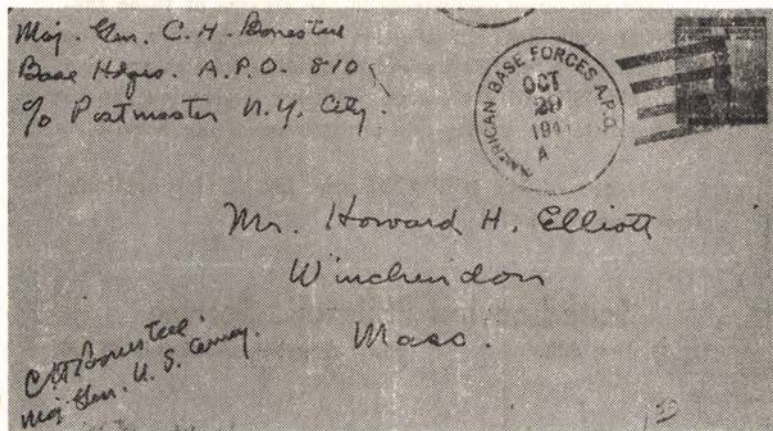 Maj. Gen. C. H. Bonesteel
Base Hdqrs. A.P.O. 810
c/o Postmaster N.Y. City.
AMERICAN BASE FORCES A.P.O.
OCT
194
A
Mr. Howard H. Elliott
Winchendon
Mass.
CH Bonesteel
Maj Gen. U. S. Army.